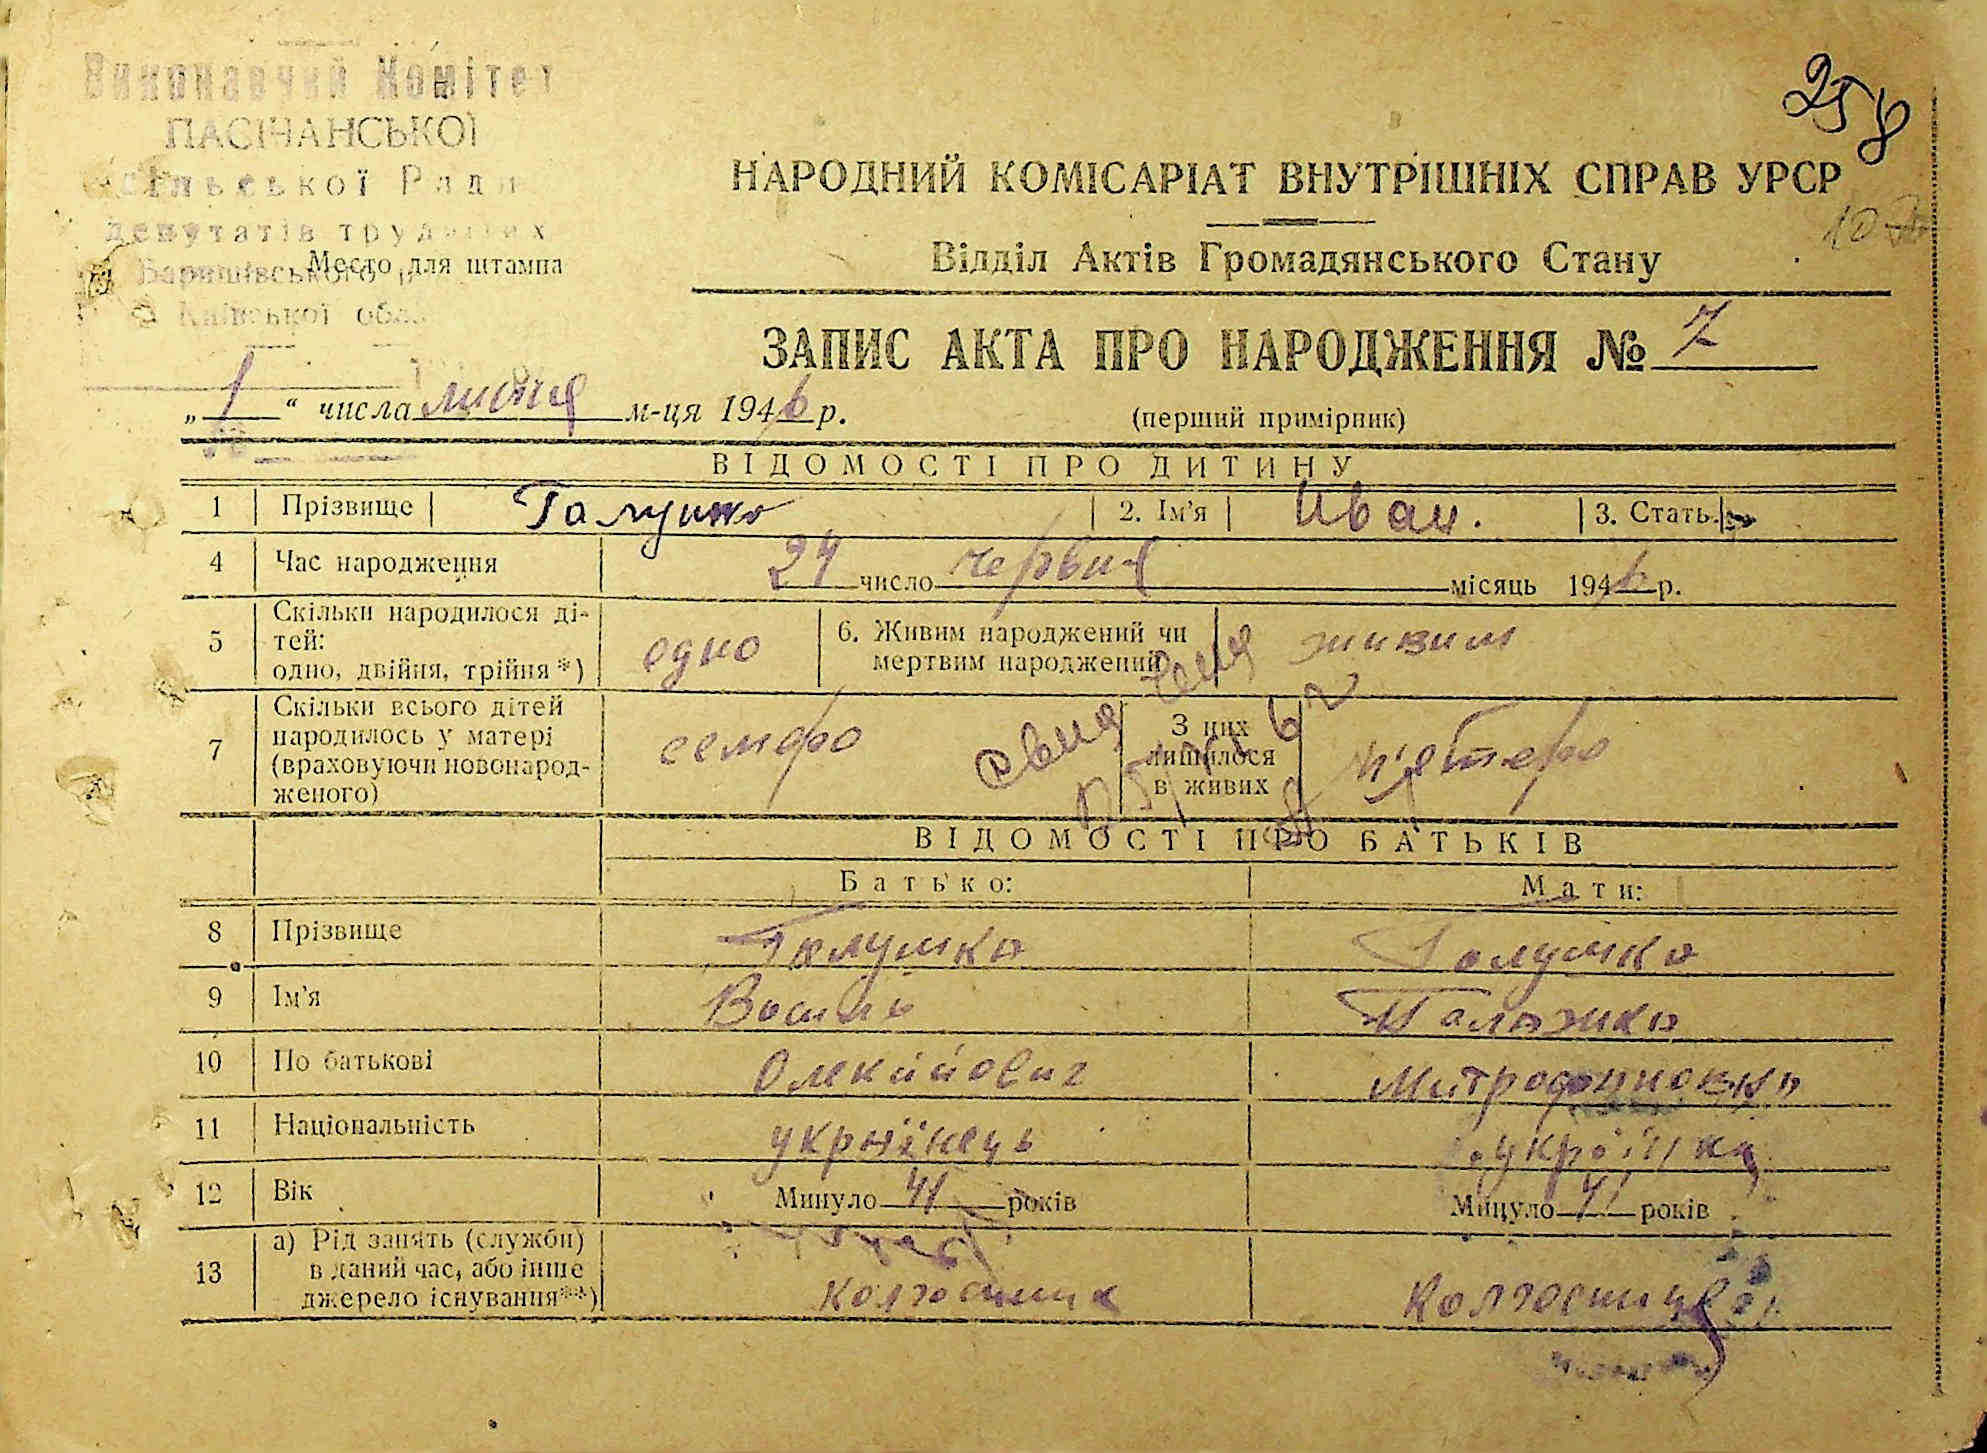 Виконавчий Комітет
ПАСІЧАНСЬКОЇ
сільської Ради
депутатів трудящих
Баришівського
Київської обл.
Место для штампа
258
НАРОДНИЙ КОМІСАРІАТ ВНУТРІШНІХ СПРАВ УРСР
107
Відділ Актів Громадянського Стану
ЗАПИС АКТА ПРО НАРОДЖЕННЯ № 7
„ 1 “ числа липня м-ця 1946 р.
(перший примірник)
ВІДОМОСТІ ПРО ДИТИНУ
1 Прізвище Галушко 2. Ім'я Иван. 3. Стать
4 Час народження 24 число червня місяць 1946 р.
5 Скільки народилося ді-
тей:
одно, двійня, трійня *) одно 6. Живим народжений чи
мертвим народжений живим
7 Скільки всього дітей
народилось у матері
(враховуючи новонарод-
женого) семеро З них
лишилося
в живих п'ятеро
ВІДОМОСТІ ПРО БАТЬКІВ
Батько: Мати:
8 Прізвище Галушко Галушко
9 Ім'я Василь Палажка
10 По батькові Олекійович Митрофановна
11 Національність українець українка
12 Вік Минуло 41 років Минуло 41 років
13 а) Рід занять (служби)
в даний час, або інше
джерело існування**) колгоспник колгоспниця